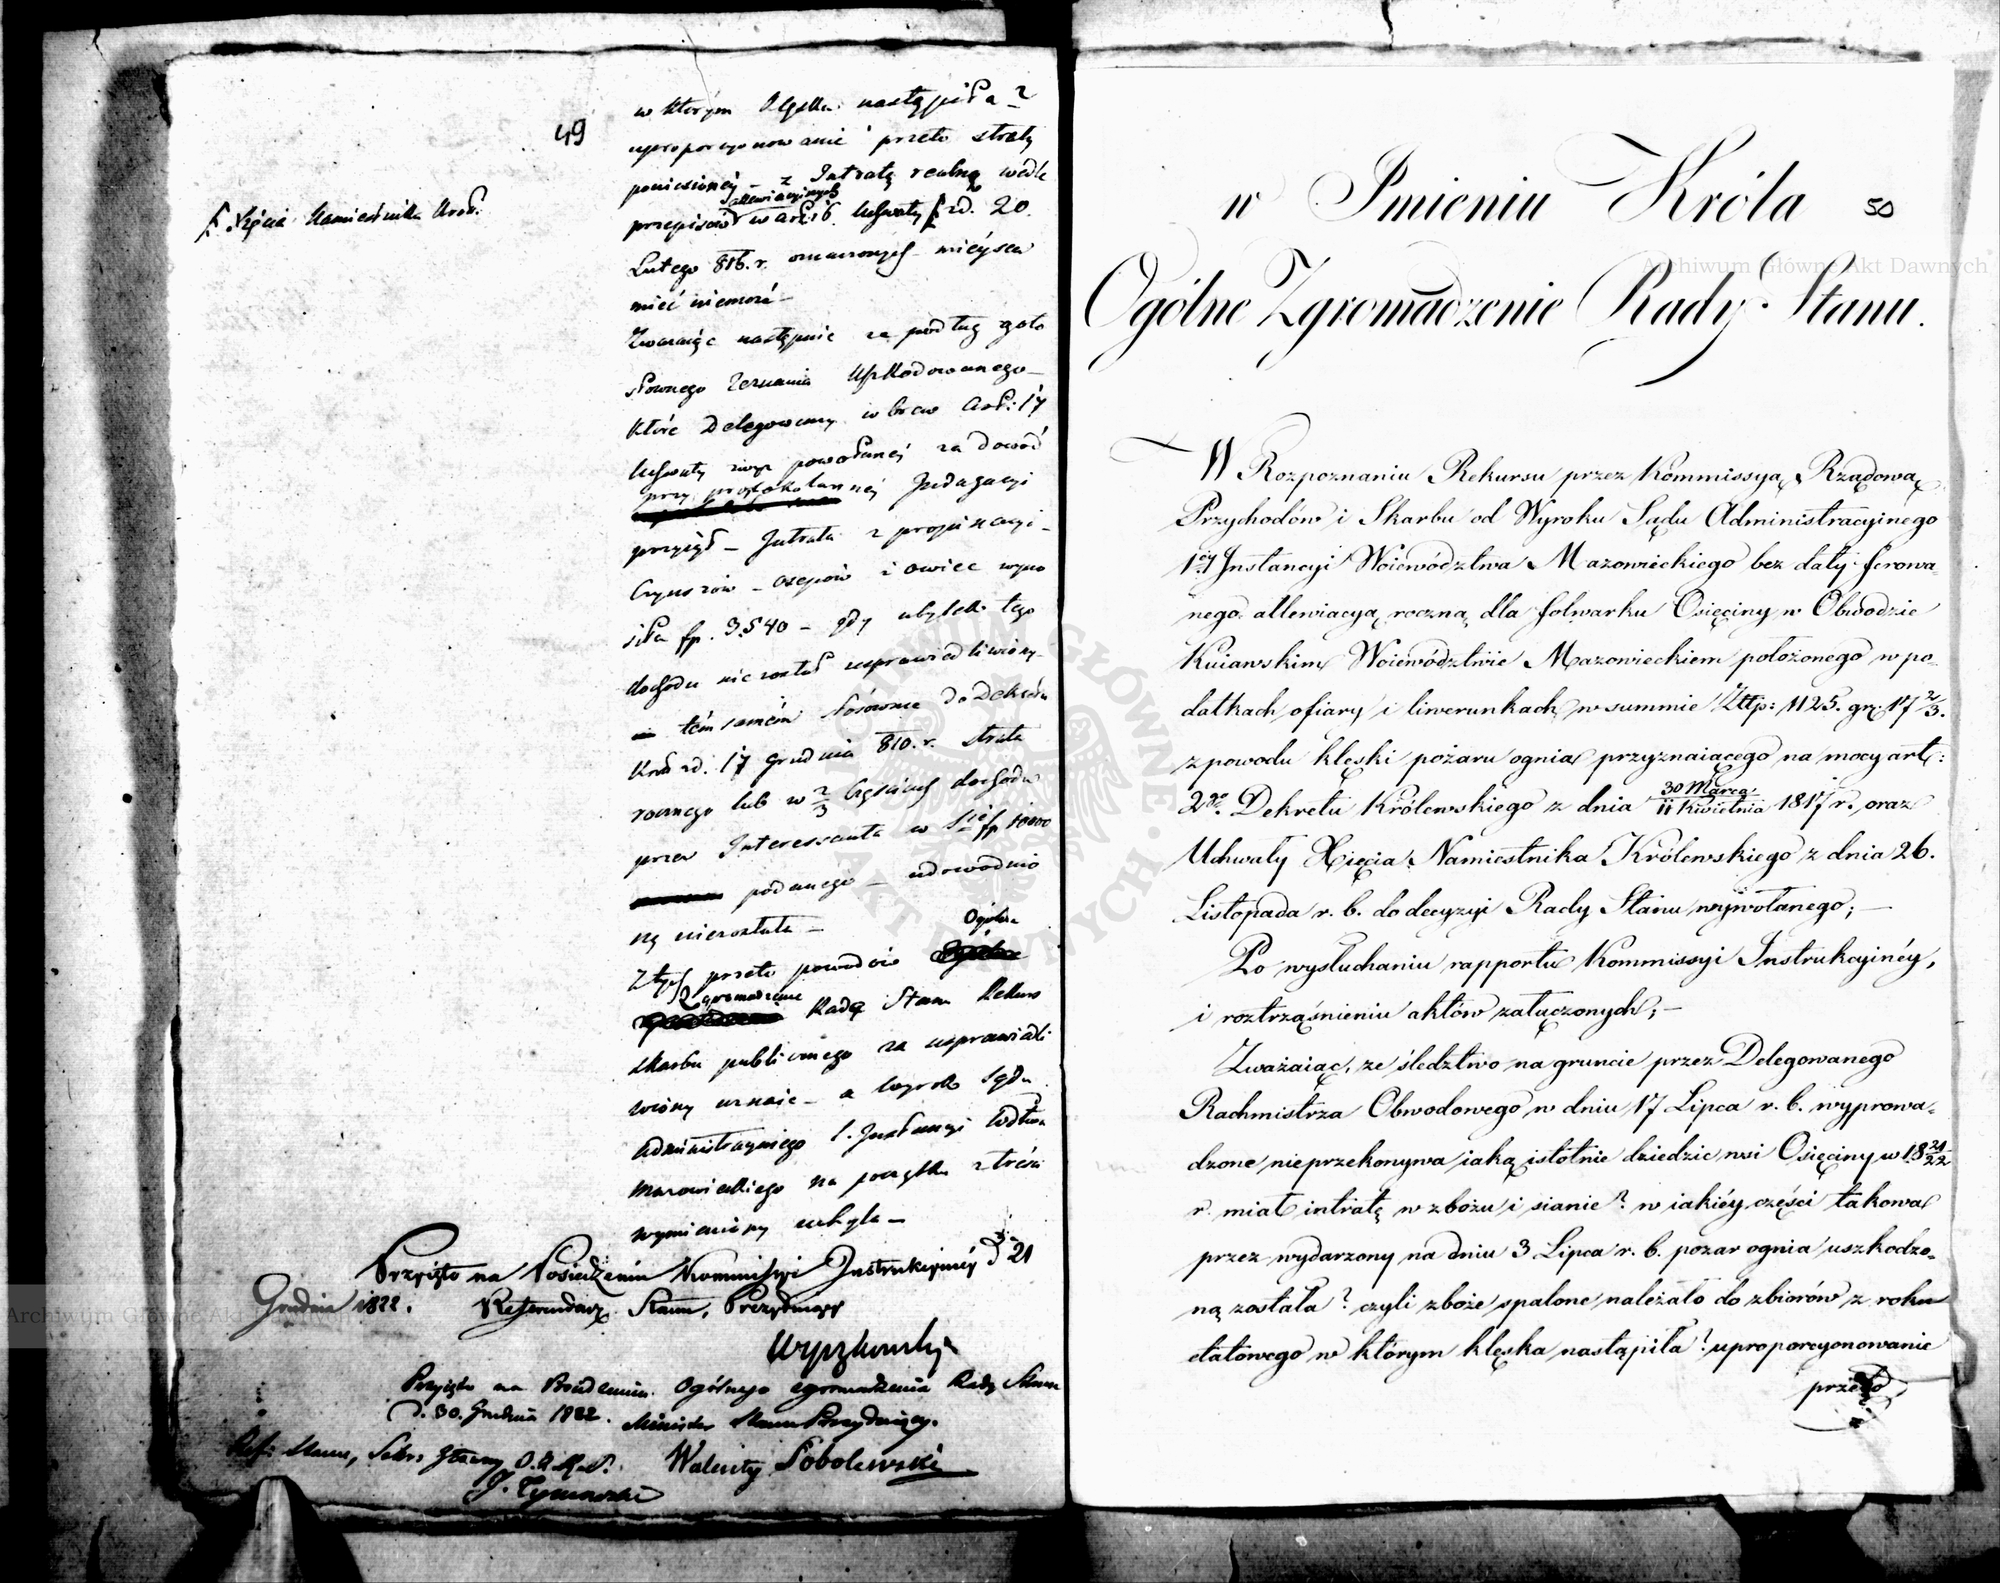 49
w którym klęska nastąpiła?
uproporcyonowanie przeto straty
poniesionéy z Intratą realną wedle
allewiacyinych
przepisów w art. 6. Uchwały f. zd. 20.
f. Xięcia Namiestnika Król.
Lutego 816. r. oznaczonych mieysca
mieć niemoże
Zważaiąc następnie że podług goło
słownego Zeznania Uszkodowanego
które Delegowany wbrew Art: 17
Uchwały wyż powołanéy za dowód
przy protokolarnéy Indagacyi
przyiął Intrata z propinacyi
Czynszów osepów i owiec wyno
siła fp. 3.540 gdy ubytek tego
dochodu nie został usprawiedliwiony
tém samém stósownie do Dekretu
Król zd. 17 Grudnia 810. r. strata
rocznego lub w 2/3 Częściach dochodu
przez Interessanta w fp 10000
podanego udowodnio
ną niezostała
Ogólne
Z tych przeto powodów
Zgromadzenie Rady Stanu Rekurs
Skarbu publicznego za usprawiedli
wiony uznaie a Wyrok Sądu
Administracyinego 1. Instancyi Wdztwa
Mazowieckiego na początku z treści
wymieniony uchyla
Przyięto na Posiedzeniu Kommissyi Instrukcyinéy d 21
Grudnia 1822. Referendarz Stanu, Prezyduiący
Wyczechowski
Przyięto na Posiedzeniu Ogólnego Zgromadzenia Rady Stanu
d. 30. Grudnia 1822. Minister Stanu Prezyduiący.
Ref: Stanu, Sekr:
Walenty Sobolewski
J. Tymowski
w Imieniu Króla
50
Ogólne Zgromadzenie Rady Stanu.
W Rozpoznaniu Rekursu przez Kommissyą Rządową
Przychodów i Skarbu od Wyroku Sądu Administracyinego
1éy Instancyi Woiewództwa Mazowieckiego bez daty ferowa-
nego allewiacyą roczną dla folwarku Osięciny w Obwodzie
Kuiawskim Woiewództwie Mazowieckiem położonego w po-
datkach ofiary i liwerunkach w summie Złtp: 1125. gr. 17 2/3.
z powodu klęski pożaru ognia przyznaiącego na mocy art:
2go Dekretu Królewskiego z dnia 30 Marca/11 Kwietnia 1817 r., oraz
Uchwały Xięcia Namiestnika Królewskiego z dnia 26.
Listopada r. b. do decyzyi Rady Stanu wywołanego; —
Po wysłuchaniu rapportu Kommissyi Instrukcyinéy,
i roztrząśnieniu aktów załączonych; —
Zważaiąc, że śledztwo na gruncie przez Delegowanego
Rachmistrza Obwodowego w dniu 17 Lipca r. b. wyprowa-
dzone nieprzekonywa iaką istótnie dziedzic wsi Osięciny w 18 21/22
r. miał intratę w zbożu i sianie? w iakiéy części takowa
przez wydarzony na dniu 3 Lipca r. b. pożar ognia uszkodzo-
ną została? czyli zboże spalone należało do zbiorów z roku
etatowego w którym klęska nastąpiła? uproporcyonowanie
przeto
Archiwum Główne Akt Dawnych
Archiwum Główne Akt Dawnych